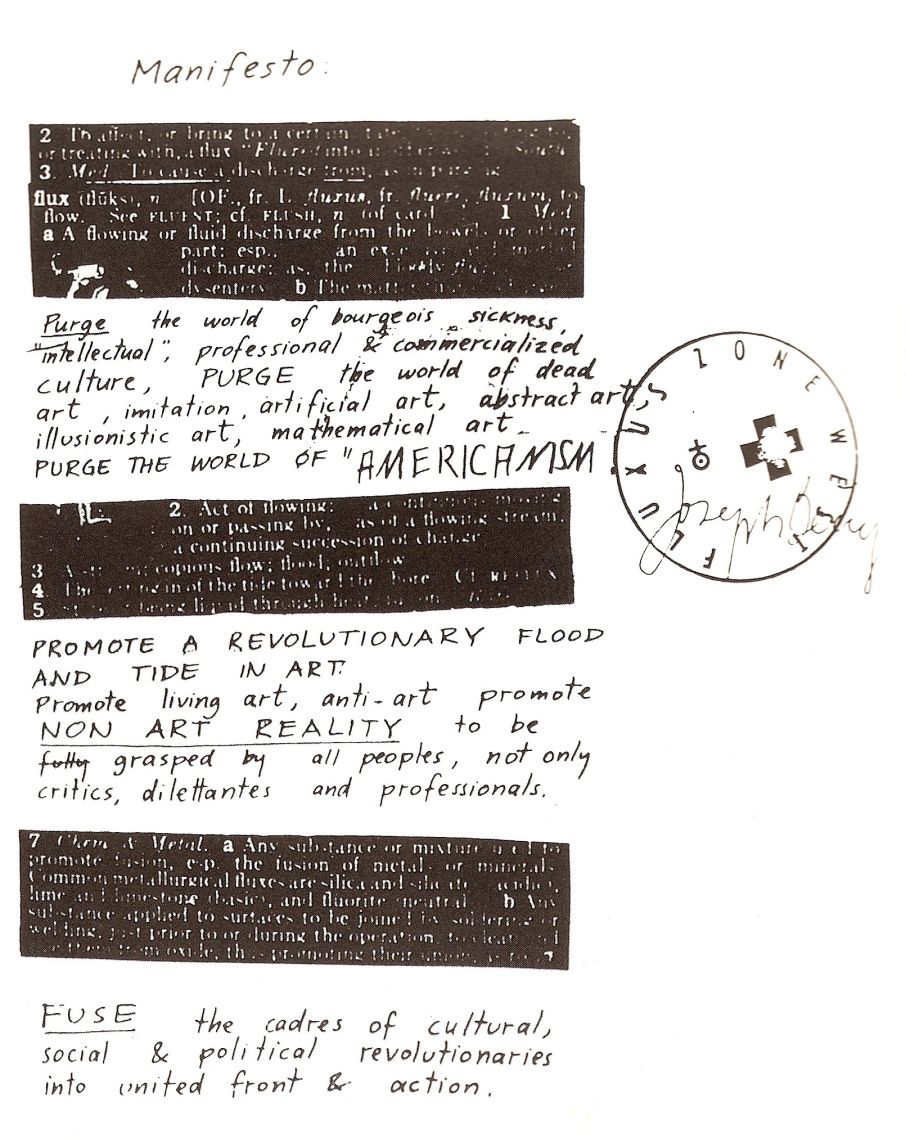 Manifesto:
2 To affect, or bring to a certain state
or treating with, a flux "Fluxed into South
3 Med. To cause a discharge from, as in purging
flux (flŭks), n [OF., fr. L. fluxus, fr. fluere, fluxum, to
flow. See FLUENT; cf. FLUSH, n (of cards 1 Med
a A flowing or fluid discharge from the bowels or other
part: esp., an
discharge: as, the bloody flux, or
dysentery b The matter
Purge the world of bourgeois sickness,
"intellectual", professional & commercialized
culture, PURGE the world of dead
art, imitation, artificial art, abstract art,
illusionistic art, mathematical art
PURGE THE WORLD OF "AMERICANISM
ZONE WEST FLUXUS
2. Act of flowing: a continuous moving
on or passing by, as of a flowing stream,
a continuing succession of change
3 A copious flow; flood; outflow
4 The setting in of the tide toward the shore Cf REFLUX
5 through heat
PROMOTE A REVOLUTIONARY FLOOD
AND TIDE IN ART.
Promote living art, anti-art promote
NON ART REALITY to be
fully grasped by all peoples, not only
critics, dilettantes and professionals.
7 Chem & Metal. a Any substance or mixture used to
promote fusion, esp. the fusion of metals or minerals
Common metallurgical fluxes are silica and silicates (acidic),
lime and limestone (basic), and fluorite (neutral) b Any
substance applied to surfaces to be joined by soldering or
welding, just prior to or during the operation, to clean and
free them from oxide, thus promoting their union, as rosin
FUSE the cadres of cultural,
social & political revolutionaries
into united front & action.